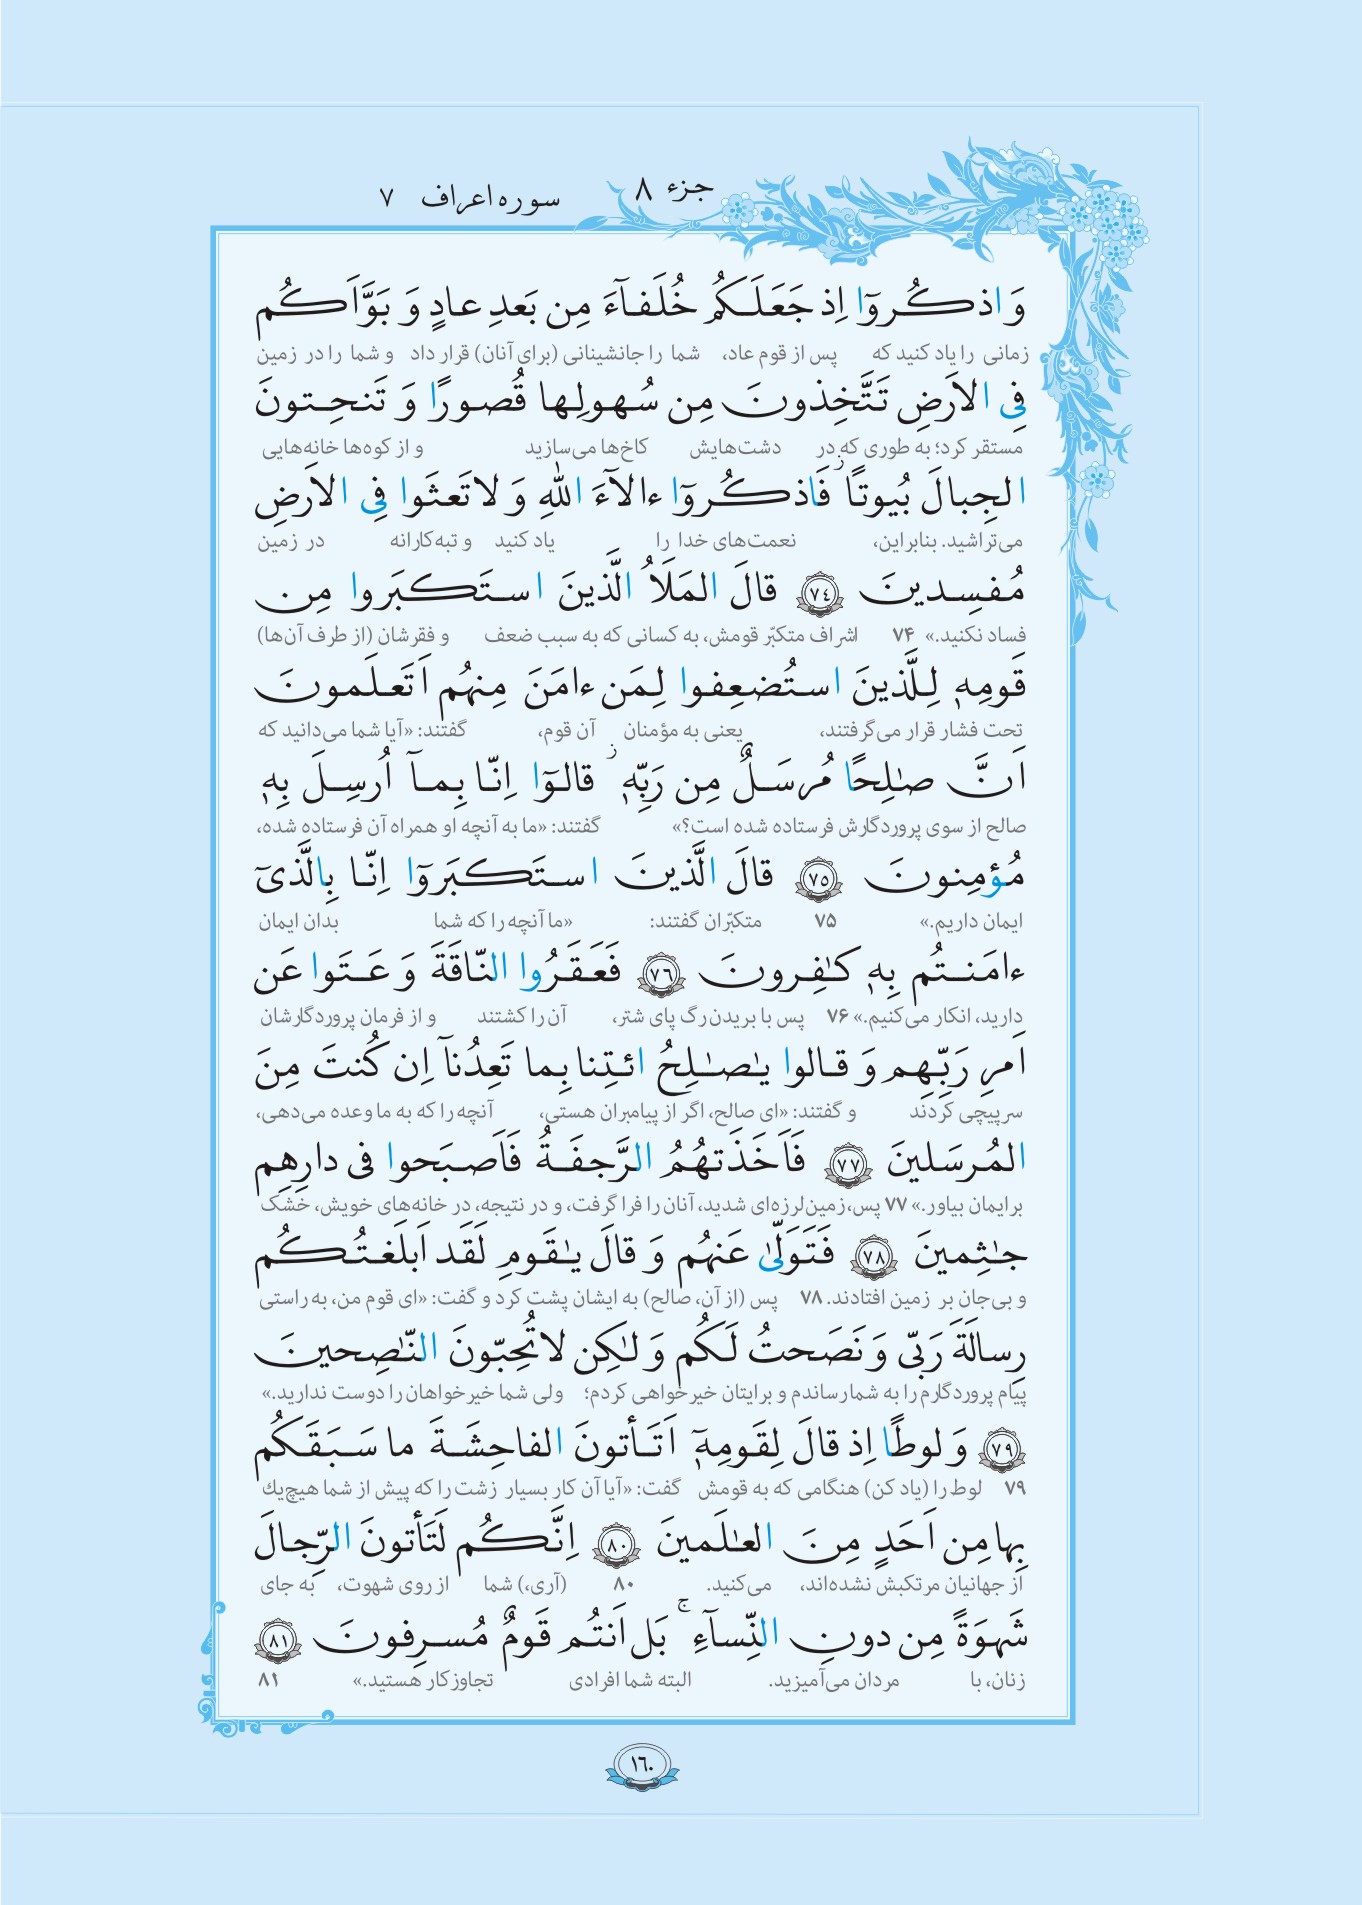 جزء ۸
سوره اعراف ۷
وَ اذكُروٓا اِذ جَعَلَكُم خُلَفآءَ مِن بَعدِ عادٍ وَ بَوَّاَكُم
زمانی را یاد کنید که پس از قوم عاد، شما را جانشینانی (برای آنان) قرار داد و شما را در زمین
فِى الاَرضِ تَتَّخِذونَ مِن سُهولِها قُصورًا وَ تَنحِتونَ
مستقر کرد؛ به طوری که در دشت‌هایش کاخ‌ها می‌سازید و از کوه‌ها خانه‌هایی
الجِبالَ بُيوتًا ۖ فَاذكُروٓا ءالآءَ اللهِ وَ لا تَعثَوا فِى الاَرضِ
می‌تراشید. بنابراین، نعمت‌های خدا را یاد کنید و تبه‌کارانه در زمین
مُفسِدينَ ﴿٧٤﴾ قالَ المَلَاُ الَّذينَ استَكبَروا مِن
فساد نکنید.» ۷۴ اشراف متکبّر قومش، به کسانی که به سبب ضعف و فقرشان (از طرف آن‌ها)
قَومِهٖ لِلَّذينَ استُضعِفوا لِمَن ءامَنَ مِنهُم اَتَعلَمونَ
تحت فشار قرار می‌گرفتند، یعنی به مؤمنان آن قوم، گفتند: «آیا شما می‌دانید که
اَنَّ صٰلِحًا مُرسَلٌ مِن رَبِّهٖ ۖ قالوٓا اِنّا بِمآ اُرسِلَ بِهٖ
صالح از سوی پروردگارش فرستاده شده است؟» گفتند: «ما به آنچه او همراه آن فرستاده شده،
مُؤمِنونَ ﴿٧٥﴾ قالَ الَّذينَ استَكبَروٓا اِنّا بِالَّذىٓ
ایمان داریم.» ۷۵ متکبّران گفتند: «ما آنچه را که شما بدان ایمان
ءامَنتُم بِهٖ كٰفِرونَ ﴿٧٦﴾ فَعَقَرُوا النّاقَةَ وَ عَتَوا عَن
دارید، انکار می‌کنیم.» ۷۶ پس با بریدن رگ پای شتر، آن را کشتند و از فرمان پروردگارشان
اَمرِ رَبِّهِم وَ قالوا يٰصٰلِحُ ائتِنا بِما تَعِدُنآ اِن كُنتَ مِنَ
سرپیچی کردند و گفتند: «ای صالح، اگر از پیامبران هستی، آنچه را که به ما وعده می‌دهی،
المُرسَلينَ ﴿٧٧﴾ فَاَخَذَتهُمُ الرَّجفَةُ فَاَصبَحوا فى دارِهِم
برایمان بیاور.» ۷۷ پس، زمین‌لرزه‌ای شدید، آنان را فرا گرفت، و در نتیجه، در خانه‌های خویش، خشک
جٰثِمينَ ﴿٧٨﴾ فَتَوَلّىٰ عَنهُم وَ قالَ يٰقَومِ لَقَد اَبلَغتُكُم
و بی‌جان بر زمین افتادند. ۷۸ پس (از آن، صالح) به ایشان پشت کرد و گفت: «ای قوم من، به راستی
رِسالَةَ رَبّى وَ نَصَحتُ لَكُم وَ لٰكِن لا تُحِبّونَ النّٰصِحينَ
پیام پروردگارم را به شما رساندم و برایتان خیرخواهی کردم؛ ولی شما خیرخواهان را دوست ندارید.»
﴿٧٩﴾ وَ لوطًا اِذ قالَ لِقَومِهٖٓ اَتَأتونَ الفاحِشَةَ ما سَبَقَكُم
۷۹ لوط را (یاد کن) هنگامی که به قومش گفت: «آیا آن کار بسیار زشت را که پیش از شما هیچ‌یك
بِها مِن اَحَدٍ مِنَ العٰلَمينَ ﴿٨٠﴾ اِنَّكُم لَتَأتونَ الرِّجالَ
از جهانیان مرتکبش نشده‌اند، می‌کنید. ۸۰ (آری،) شما از روی شهوت، به جای
شَهوَةً مِن دونِ النِّسآءِ ۚ بَل اَنتُم قَومٌ مُسرِفونَ ﴿٨١﴾
زنان، با مردان می‌آمیزید. البته شما افرادی تجاوزکار هستید.» ۸۱
١٦٠